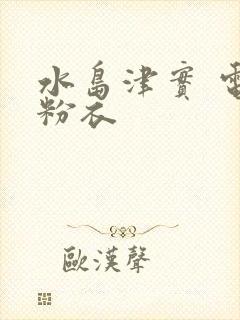 水島津實
粉衣
歐漢聲